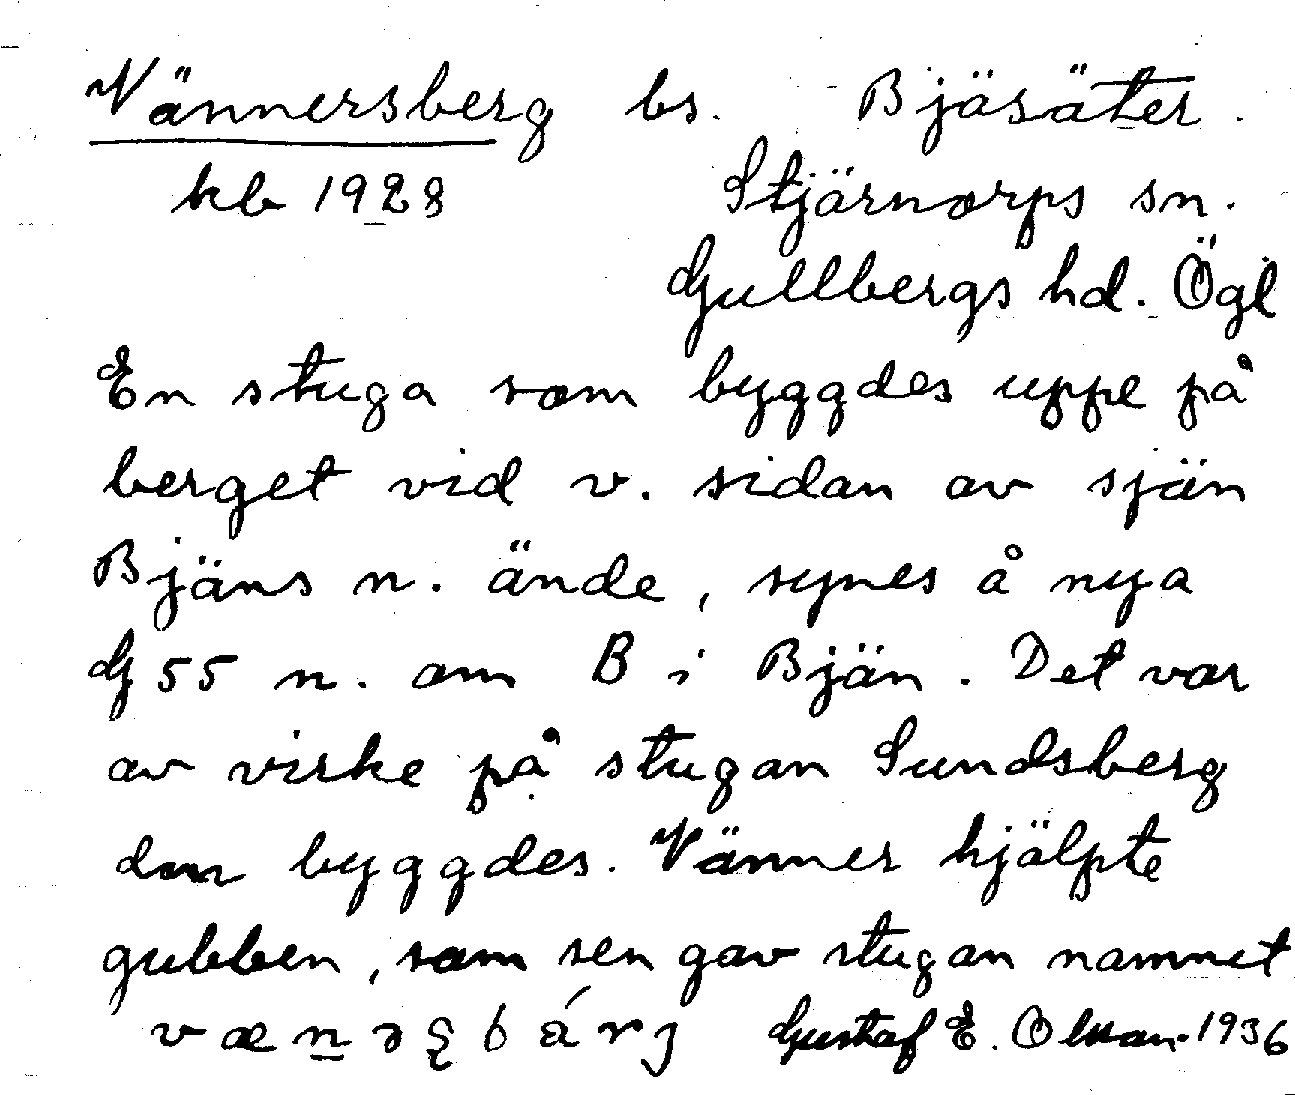 Vännersberg bs. Bjäsäter.
kb 1928 Stjärnorps sn.
Gullbergs hd. Ögl
En stuga som byggdes uppe på
berget vid v. sidan av sjön
Bjäns n. ände, synes å nya
G 55 n. om B i Bjän. Det var
av virke på stugan Sundsberg
den byggdes. Vänner hjälpte
gubben, som sen gav stugan namnet
Gustaf E. Olsson. 1936